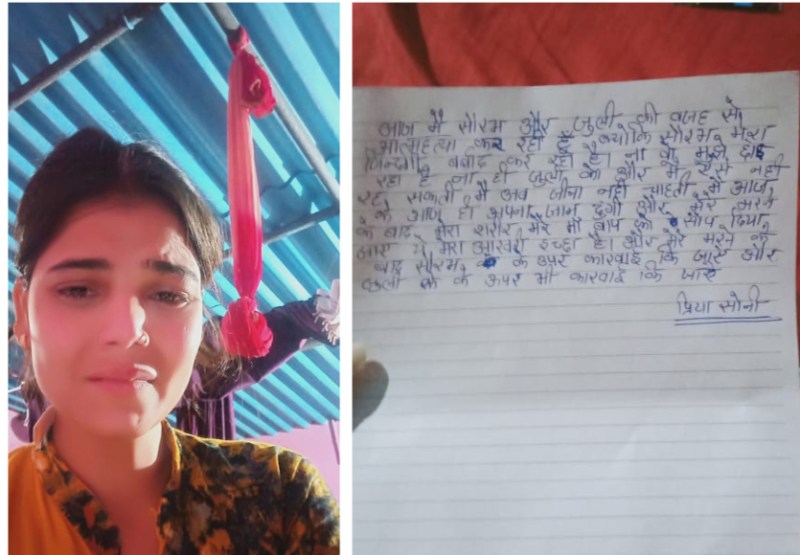 आज मैं सौरभ और जुली की वजह से
आत्महत्या कर रही हूँ क्योंकि सौरभ मेरा
जिन्दगी बर्बाद कर रहा है। ना वो मुझे छोड़
रहा है ना ही जुली को और मैं ऐसे नहीं
रह सकती मैं अब जीना नहीं चाहती मैं आज
के आज ही अपना जान दुंगी और मेरे मरने
के बाद मेरा शरीर मेरे माँ बाप को सौप दिया
जाए ये मेरा आखरी इच्छा है। और मेरे मरने के
बाद सौरभ के उपर कारवाई कि जाए और
जुली के ऊपर भी कारवाई कि जाए
प्रिया सोनी